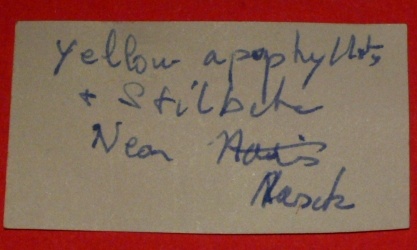 Yellow apophyllite
+ Stilbite
Near
Nasik